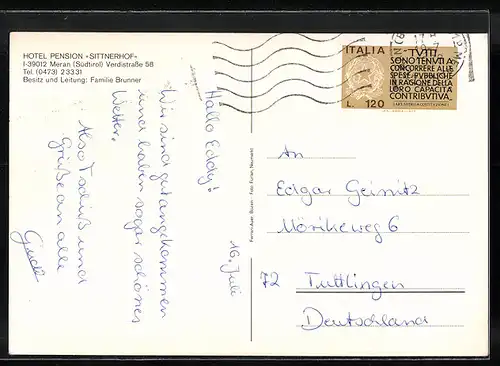 HOTEL PENSION «SITTNERHOF»
I-39012 Meran (Südtirol) Verdistraße 58
Tel. (0473) 23331
Besitz und Leitung: Familie Brunner
ITALIA
TUTTI
SONO TENUTI A
CONCORRERE ALLE
SPESE PUBBLICHE
IN RAGIONE DELLA
LORO CAPACITÀ
CONTRIBUTIVA.
L. 120
16. Juli
Hallo Eddy!
Wir sind gut angekommen
und haben sogar schönes
Wetter.
Also Tschüß und
Grüße an alle
An
Edgar Geinitz
Mörikeweg 6
72 Tuttlingen
Deutschland